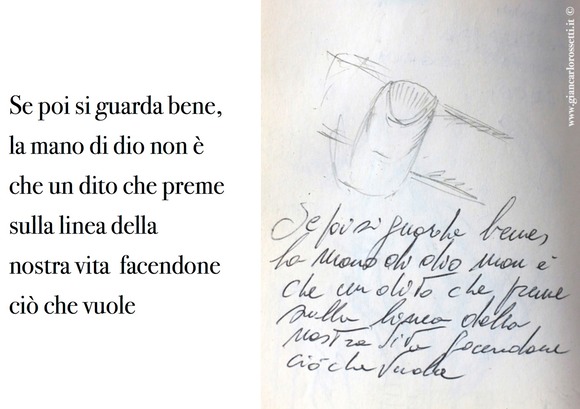 Se poi si guarda bene,
la mano di dio non è
che un dito che preme
sulla linea della
nostra vita  facendone
ciò che vuole
www.giancarlorossetti.it ©
Se poi si guarda bene,
la mano di dio non è
che un dito che preme
sulla linea della
nostra vita facendone
ciò che vuole